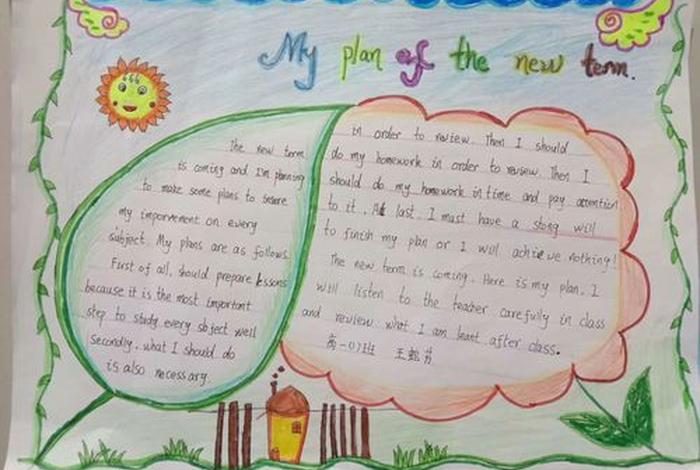 My plan of the new term.
The new term
is coming and I'm planning
to make some plans to insere
my imporvement on every
subject. My plans are as follows.
First of all, should prepare lessons
because it is the most important
step to study every sbject well
Secondly, what I should do
is also necessary.
in order to review. Then I should
do my homework in order to review. Then I
should do my homework in time and pay attention
to it. At last, I must have a stong will
to finish my plan or I will achieve nothing!
The new term is coming. Here is my plan. I
will listen to the teacher carefully in class
and review what I am leant after class.
高一07班 王